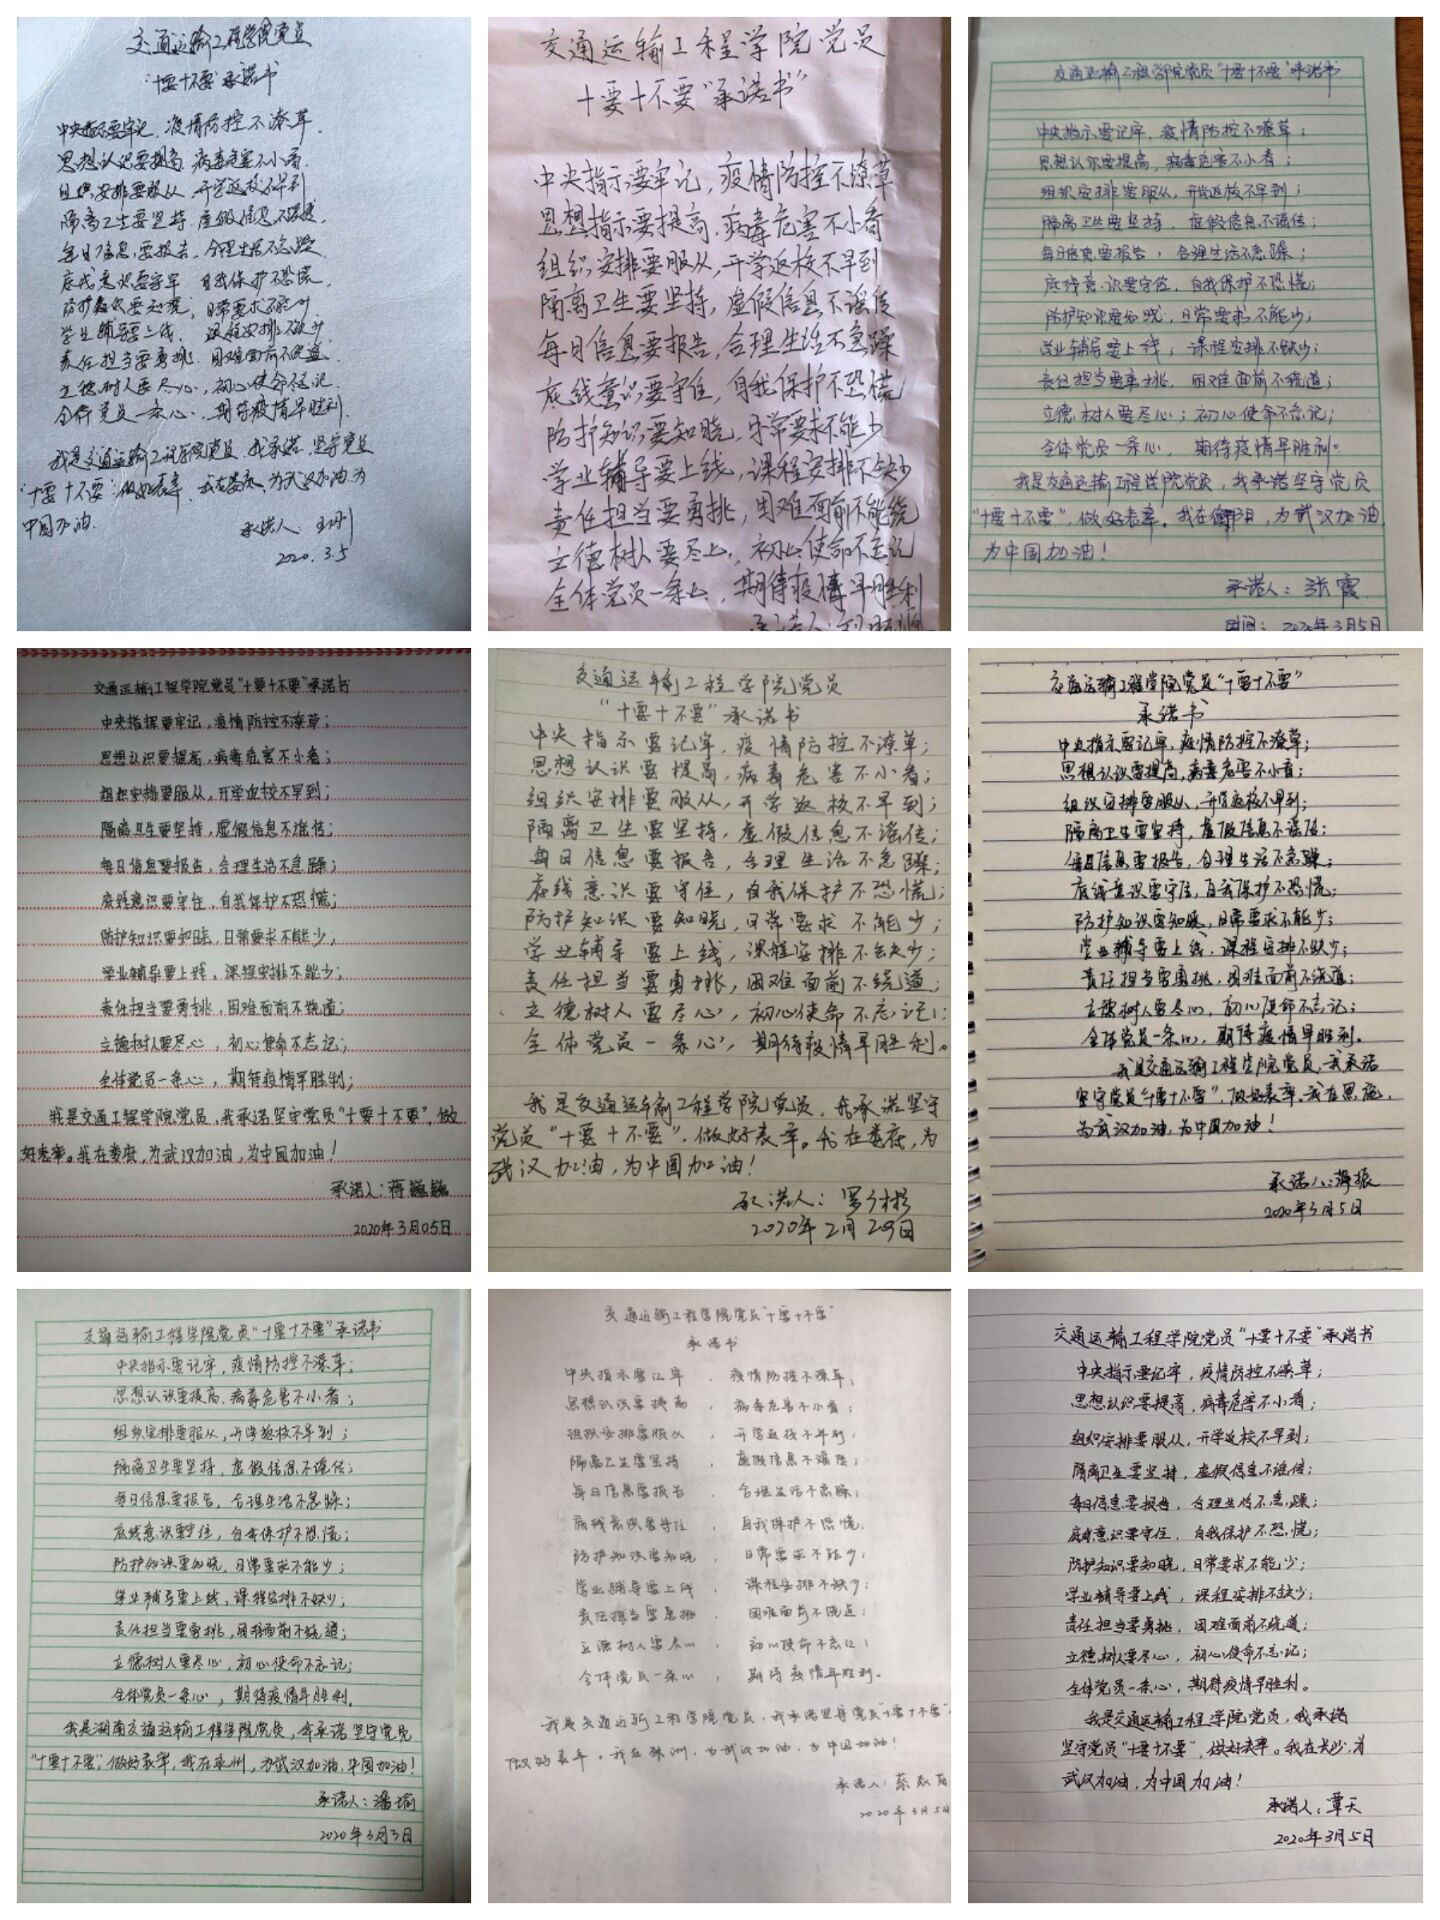 交通运输工程学院党员
“十要十不要”承诺书
中央指示要牢记,疫情防控不潦草.
思想认识要提高,病毒危害不小看.
组织安排要服从,开学返校不早到
隔离卫生要坚持,虚假信息不谣传.
每日信息要报告,合理生活不急躁.
底线意识要守牢 自我保护不恐慌.
防护知识要知晓;日常要求不能少
学生辅导要上线.课程安排不缺少.
责任担当要勇挑.困难面前不绕道.
立德树人要尽心,初心使命不忘记.
全体党员一条心,期待疫情早胜利.
我是交通运输工程学院党员,我承诺,坚守党员
“十要十不要”做好表率.我在娄底,为武汉加油为
中国加油.
承诺人:
2020.3.5
交通运输工程学院党员
十要十不要“承诺书”
中央指示要牢记,疫情防控不潦草
思想指示要提高,病毒危害不小看
组织安排要服从,开学返校不早到
隔离卫生要坚持,虚假信息不谣传
每日信息要报告,合理生活不急躁
底线意识要守住,自我保护不恐慌
防护知识要知晓,日常要求不能少
学业辅导要上线,课程安排不缺少
责任担当要勇挑,困难面前不能绕
立德树人要尽心,初心使命不忘记
全体党员一条心,期待疫情早胜利
承诺人:
交通运输工程学院党员“十要十不要”承诺书
中央指示要记牢,疫情防控不潦草;
思想认识要提高,病毒危害不小看;
组织安排要服从,开学返校不早到;
隔离卫生要坚持,虚假信息不谣传;
每日信息要报告,合理生活不急躁;
底线意识要守住,自我保护不恐慌;
防护知识要知晓,日常要求不能少;
学业辅导要上线,课程安排不缺少;
责任担当要勇挑,困难面前不绕道;
立德树人要尽心;初心使命不忘记;
全体党员一条心,期待疫情早胜利。
我是交通运输工程学院党员,我承诺坚守党员
“十要十不要”,做好表率。我在衡阳,为武汉加油
为中国加油!
承诺人:张霞
时间:2020年3月5日
交通运输工程学院党员“十要十不要”承诺书
中央指挥要牢记,疫情防控不潦草;
思想认识要提高,病毒危害不小看;
组织安排要服从,开学返校不早到;
隔离卫生要坚持,虚假信息不谣传;
每日信息要报告,合理生活不急躁;
底线意识要守住,自我保护不恐慌;
防护知识要知晓,日常要求不能少,
学业辅导要上线,课程安排不能少;
责任担当要勇挑,困难面前不绕道;
立德树人要尽心,初心使命不忘记;
全体党员一条心,期待疫情早胜利;
我是交通工程学院党员,我承诺坚守党员“十要十不要”,做
好表率。我在娄底,为武汉加油,为中国加油!
承诺人:蒋巍巍
2020年3月05日
交通运输工程学院党员
“十要十不要”承诺书
中央指示要记牢,疫情防控不潦草;
思想认识要提高,病毒危害不小看;
组织安排要服从,开学返校不早到;
隔离卫生要坚持,虚假信息不谣传;
每日信息要报告,合理生活不急躁;
底线意识要守住,自我保护不恐慌;
防护知识要知晓,日常要求不能少;
学业辅导要上线,课程安排不缺少;
责任担当要勇挑,困难面前不绕道;
立德树人要尽心,初心使命不忘记;
全体党员一条心,期待疫情早胜利。
我是交通运输工程学院党员,我承诺坚守
党员“十要十不要”,做好表率。我在娄底,为
武汉加油,为中国加油!
承诺人:罗彬
2020年2月29日
交通运输工程学院党员“十要十不要”
承诺书
中央指示要记牢,疫情防控不潦草;
思想认识要提高,病毒危害不小看;
组织安排要服从,开学返校不早到;
隔离卫生要坚持,虚假信息不谣传;
每日信息要报告,合理生活不急躁;
底线意识要守住,自我保护不恐慌;
防护知识要知晓,日常要求不能少;
学业辅导要上线,课程安排不缺少;
责任担当要勇挑,困难面前不绕道;
立德树人要尽心,初心使命不忘记;
全体党员一条心,期待疫情早胜利。
我是交通运输工程学院党员,我承诺
坚守党员“十要十不要”,做好表率,我在恩施,
为武汉加油,为中国加油!
承诺人:蒋振
2020年3月5日
交通运输工程学院党员“十要十不要”承诺书
中央指示要记牢,疫情防控不潦草;
思想认识要提高,病毒危害不小看;
组织安排要服从,开学返校不早到;
隔离卫生要坚持,虚假信息不谣传;
每日信息要报告,合理生活不急躁;
底线意识要守住,自我保护不恐慌;
防护知识要知晓,日常要求不能少;
学业辅导要上线,课程安排不缺少;
责任担当要勇挑,困难面前不绕道;
立德树人要尽心,初心使命不忘记;
全体党员一条心,期待疫情早胜利。
我是湖南交通运输工程学院党员,我承诺坚守党员
“十要十不要”,做好表率,我在永州,为武汉加油,中国加油!
承诺人:潘瑜
2020年3月3日
交通运输工程学院党员“十要十不要”
承诺书
中央指示要记牢,疫情防控不潦草;
思想认识要提高,病毒危害不小看;
组织安排要服从,开学返校不早到;
隔离卫生要坚持,虚假信息不谣传;
每日信息要报告,合理生活不急躁;
底线意识要守住,自我保护不恐慌;
防护知识要知晓,日常要求不能少;
学业辅导要上线,课程安排不缺少;
责任担当要勇挑,困难面前不绕道;
立德树人要尽心,初心使命不忘记;
全体党员一条心,期待疫情早胜利。
我是交通运输工程学院党员,我承诺坚守党员“十要十不要”,
做好表率。我在株洲,为武汉加油,为中国加油!
承诺人:蔡
2020年3月5日
交通运输工程学院党员“十要十不要”承诺书
中央指示要记牢,疫情防控不潦草;
思想认识要提高,病毒危害不小看;
组织安排要服从,开学返校不早到;
隔离卫生要坚持,虚假信息不谣传;
每日信息要报告,合理生活不急躁;
底线意识要守住,自我保护不恐慌;
防护知识要知晓,日常要求不能少;
学业辅导要上线,课程安排不缺少;
责任担当要勇挑,困难面前不绕道;
立德树人要尽心,初心使命不忘记;
全体党员一条心,期待疫情早胜利。
我是交通运输工程学院党员,我承诺
坚守党员“十要十不要”,做好表率。我在长沙,为
武汉加油,为中国加油!
承诺人:覃天
2020年3月5日